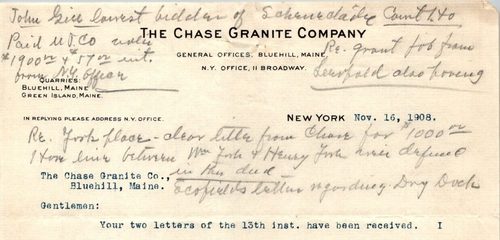 John Gill lowest bidder of Schenectady Court Ho
Paid U.T.Co note
THE CHASE GRANITE COMPANY
$1900 00 & $57 00 int.
GENERAL OFFICES, BLUEHILL, MAINE
Re. grant job from
from N.Y. Office
N.Y. OFFICE, 11 BROADWAY.
QUARRIES:
BLUEHILL, MAINE
GREEN ISLAND, MAINE.
IN REPLYING PLEASE ADDRESS N.Y. OFFICE.
NEW YORK Nov. 16, 1908.
Re. York place - clear letter from Chase for $1000 00
line between Wm York & Henry York
in this deed
The Chase Granite Co.,
Bluehill, Maine.
letter regarding Dry Dock
Gentlemen:
Your two letters of the 13th inst. have been received. I